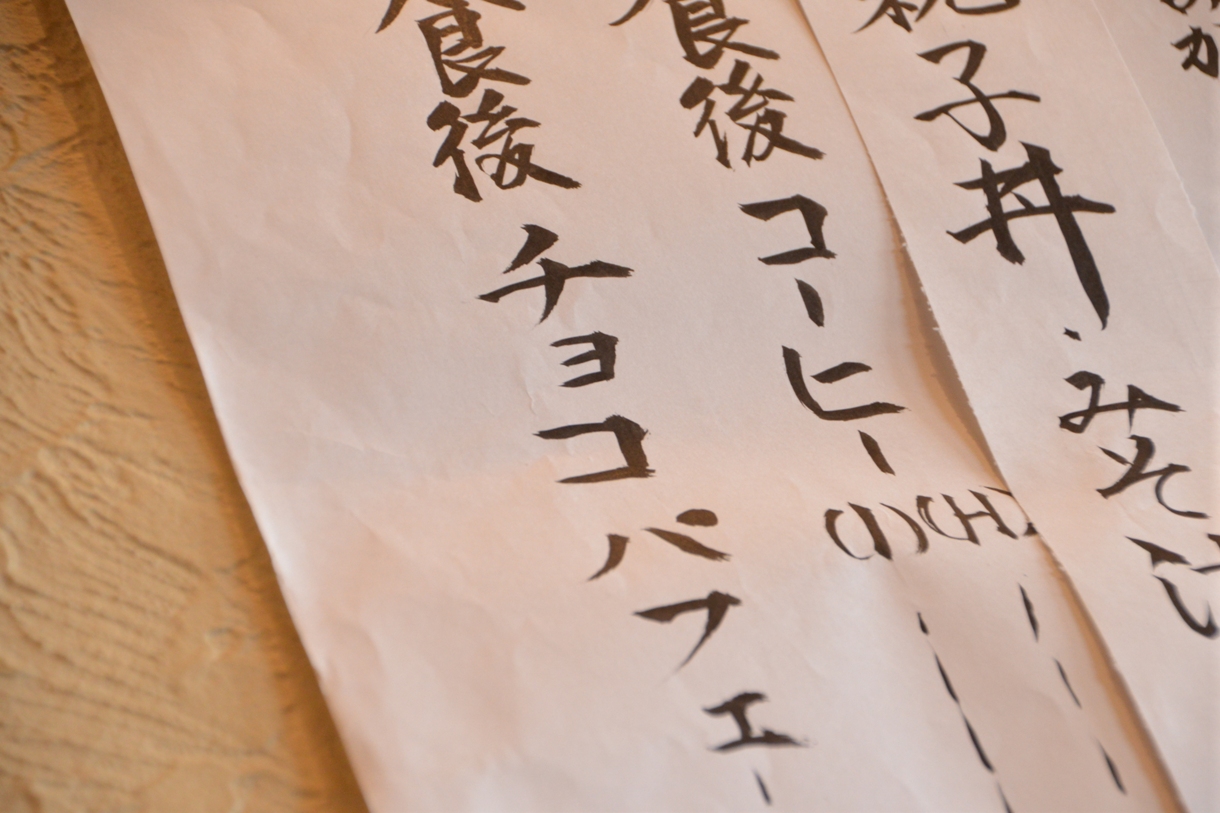 親子丼・みそ汁
食後コーヒー(H)
(I)
食後チョコパフェ